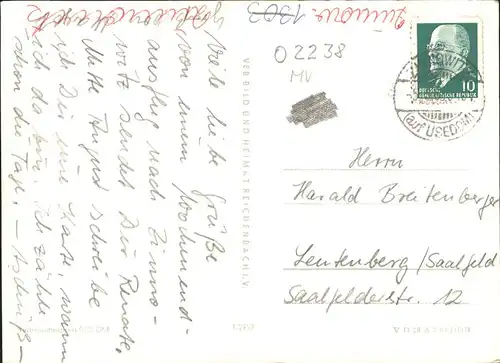 Zinnowi. 1303
02238
MV
10
DEUTSCHE
DEMOKRATISCHE REPUBLIK
(auf USEDOM)
Viele liebe Grüße
von einem Wochenend-
ausflug nach Zinno-
witz sendet Dir Renate.
Mitte August schreibe
ich Dir eine Karte, wann
ich da bin. Ich zähle
schon die Tage. –
VERB BILD UND HEIMAT REICHENBACH I. V.
Herrn
Harald Breitenberger
Leutenberg/Saalfeld
Saalfelderstr. 12